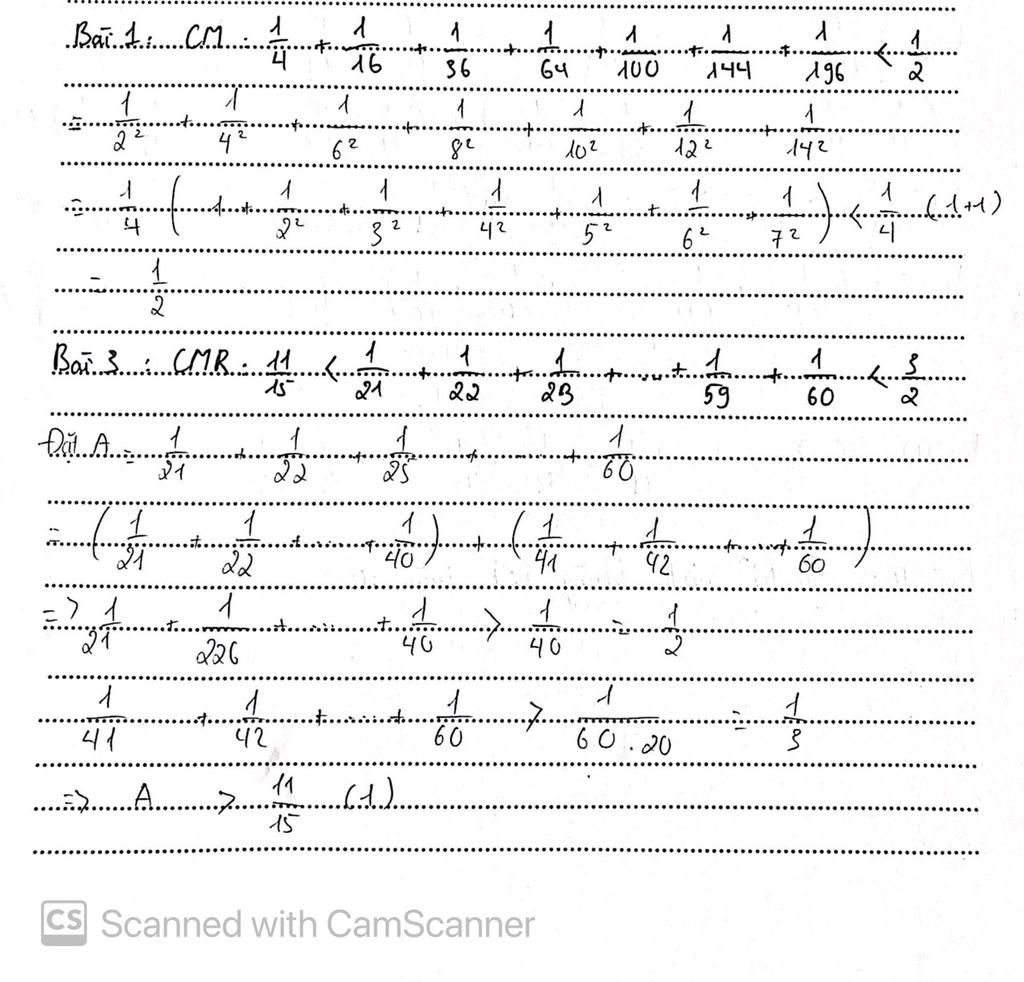 Bài 1: CM: 1/4 + 1/16 + 1/36 + 1/64 + 1/100 + 1/144 + 1/196 < 1/2
= 1/2² + 1/4² + 1/6² + 1/8² + 1/10² + 1/12² + 1/14²
= 1/4 (1 + 1/2² + 1/3² + 1/4² + 1/5² + 1/6² + 1/7²) < 1/4 (1+1)
= 1/2
Bài 3: CMR: 11/15 < 1/21 + 1/22 + 1/23 + ... + 1/59 + 1/60 < 3/2
Đặt A = 1/21 + 1/22 + 1/25 + ... + 1/60
= (1/21 + 1/22 + ... + 1/40) + (1/41 + 1/42 + ... + 1/60)
=> 1/21 + 1/226 + ... + 1/40 > 1/40 = 1/2
1/41 + 1/42 + ... + 1/60 > 1/60.20 = 1/3
=> A > 11/15 (1)
CS Scanned with CamScanner